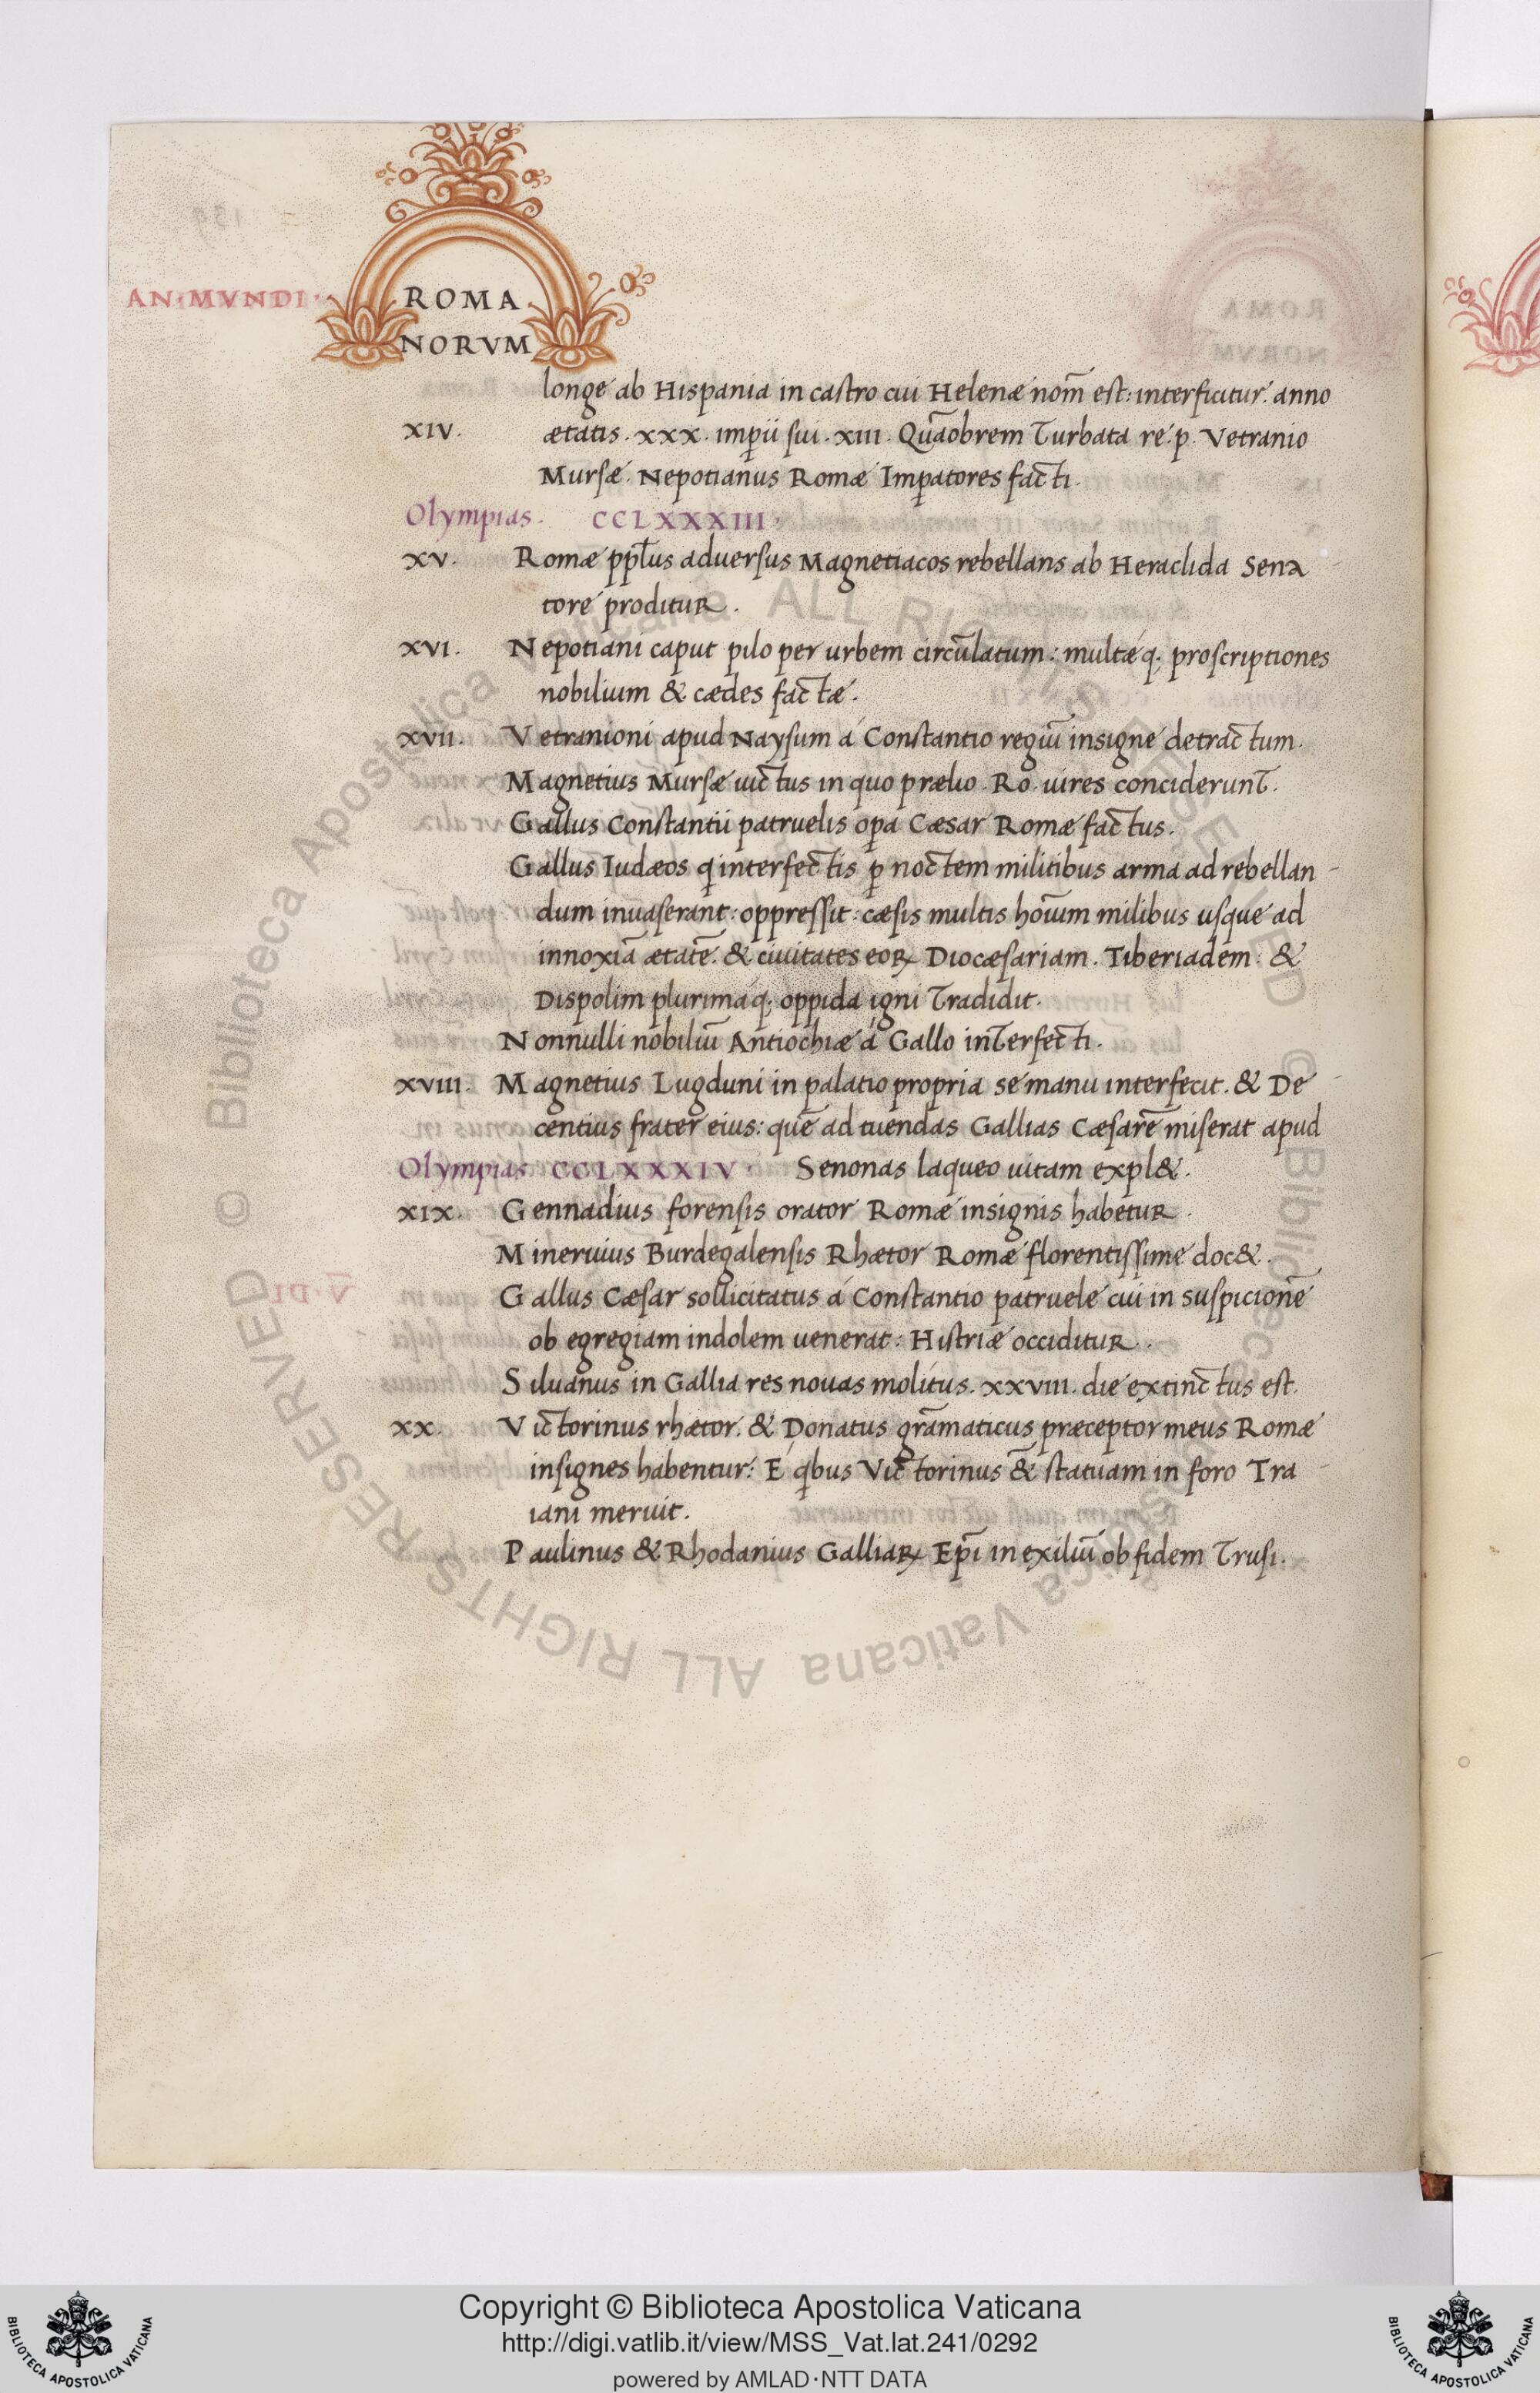 AN·MVNDI·
ROMA
NORVM
longe ab Hispania in castro cui Helenæ nom̄ est: interficitur. anno
XIV. ætatis. xxx. imp̄ii sui. xiii. Quāobrem Turbata re. p. Vetranio
Mursæ. Nepotianus Romæ Imp̱atores facti.
Olympias. CCLXXXIII.
XV. Romæ pp̄lus aduersus Magnetiacos rebellans ab Heraclida Sena
tore proditur.
XVI. Nepotiani caput pilo per urbem circūlatum: multæq; proscriptiones
nobilium & cædes factæ.
XVII. Vetranioni apud Naysum á Constantio regiū insigne detractum.
Magnetius Mursæ uictus in quo prælio. Ro. uires conciderunt.
Gallus Constantii patruelis opa Cæsar Romæ factus.
Gallus Iudæos q interfectis p noctem militibus arma ad rebellan-
dum inuaserant: oppressit: cæsis multis hoīum milibus usque ad
innoxiā ætatē. & ciuitates eoꝝ Diocæsariam. Tiberiadem. &
Dispolim plurimaq; oppida igni Tradidit.
Nonnulli nobiliū Antiochiæ á Gallo interfecti.
XVIII. Magnetius Lugduni in palatio propria se manu interfecit. & De-
centius frater eius: quē ad tuendas Gallias Cæsarē miserat apud
Olympias. CCLXXXIV. Senonas laqueo uitam expl&.
XIX. Gennadius forensis orator Romæ insignis habetur.
Mineruius Burdegalensis Rhætor Romæ florentissime doc&.
Gallus Cæsar sollicitatus á Constantio patruele cui in suspicionē
ob egregiam indolem uenerat: Histriæ occiditur.
Siluanus in Gallia res nouas molitus. xxviii. die extinctus est.
XX. Victorinus rhætor. & Donatus grāmaticus præceptor meus Romæ
insignes habentur: É qbus Victorinus & statuam in foro Tra-
iani meruit.
Paulinus & Rhodanius Galliaꝝ Epī in exiliū ob fidem Trusi.
© Biblioteca Apostolica Vaticana ALL RIGHTS RESERVED
© Biblioteca Apostolica Vaticana ALL RIGHTS RESERVED
Copyright © Biblioteca Apostolica Vaticana
http://digi.vatlib.it/view/MSS_Vat.lat.241/0292
powered by AMLAD·NTT DATA
BIBLIOTECA APOSTOLICA VATICANA
BIBLIOTECA APOSTOLICA VATICANA